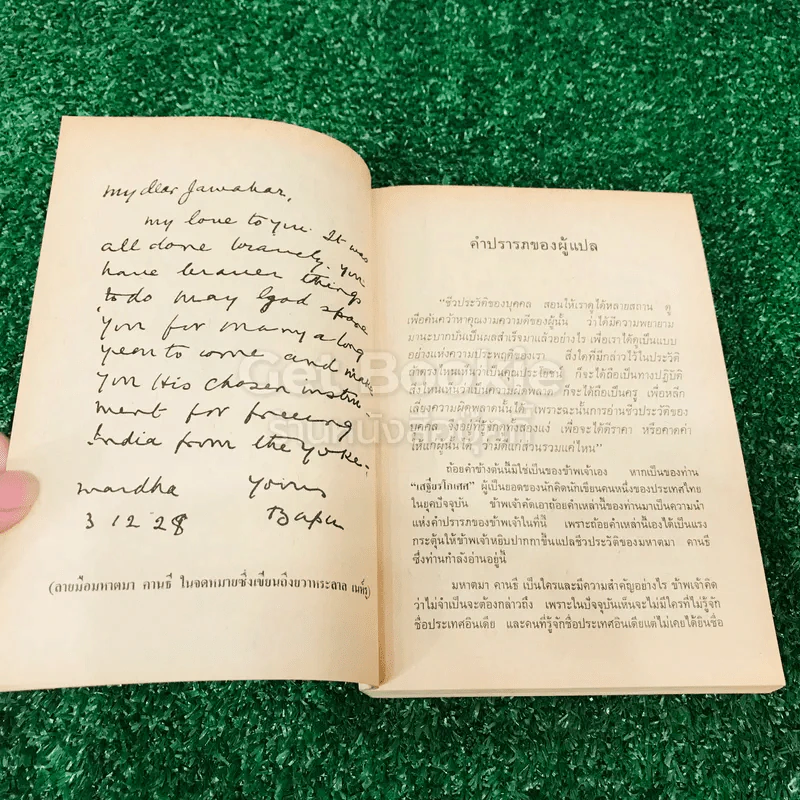 my dear Jawahar,
my love to you. It was
all done bravely. You
have braver things
to do may God spare
you for many a long
year to come and make
you His chosen instru-
ment for freeing
India from the yoke.
Wardha Yours
3 12 28 Bapu
(ลายมือมหาตมา คานธี ในจดหมายซึ่งเขียนถึงยวาหระลาล เนห์รู)
คำปรารภของผู้แปล
"ชีวประวัติของบุคคล สอนให้เราดูได้หลายสถาน ดู
เพื่อค้นคว้าหาคุณงามความดีของผู้นั้น ว่าได้มีความพยายาม
มานะบากบั่นเป็นผลสำเร็จมาแล้วอย่างไร เพื่อเราได้ดูเป็นแบบ
อย่างแห่งความประพฤติของเรา สิ่งใดที่มีกล่าวไว้ในประวัติ
ลำตรงไหนเห็นว่าเป็นคุณประโยชน์ ก็จะได้ถือเป็นทางปฏิบัติ
สิ่งไหนเห็นว่าเป็นความผิดพลาด ก็จะได้ถือเป็นครู เพื่อหลีก
เลี่ยงความผิดพลาดนั้นได้ เพราะฉะนั้นการอ่านชีวประวัติของ
บุคคล จึงอยู่ที่รู้จักดูทั้งสองแง่ เพื่อจะได้ตีราคา หรือคาดค่า
ให้แก่ผู้นั้นได้ ว่ามีดีแก่ส่วนรวมแค่ไหน"
ถ้อยคำข้างต้นนี้มิใช่เป็นของข้าพเจ้าเอง หากเป็นของท่าน
"เสฐียรโกเศศ" ผู้เป็นยอดของนักคิดนักเขียนคนหนึ่งของประเทศไทย
ในยุคปัจจุบัน ข้าพเจ้าคัดเอาถ้อยคำเหล่านี้ของท่านมาเป็นความนำ
แห่งคำปรารภของข้าพเจ้าในที่นี้ เพราะถ้อยคำเหล่านี้เองได้เป็นแรง
กระตุ้นให้ข้าพเจ้าหยิบปากกาขึ้นแปลชีวประวัติของมหาตมา คานธี
ซึ่งท่านกำลังอ่านอยู่นี้
มหาตมา คานธี เป็นใครและมีความสำคัญอย่างไร ข้าพเจ้าคิด
ว่าไม่จำเป็นจะต้องกล่าวถึง เพราะในปัจจุบันเห็นจะไม่มีใครที่ไม่รู้จัก
ชื่อประเทศอินเดีย และคนที่รู้จักชื่อประเทศอินเดียแต่ไม่เคยได้ยินชื่อ
Get Bookie
ร้านหนังสือฟุ้งกี้